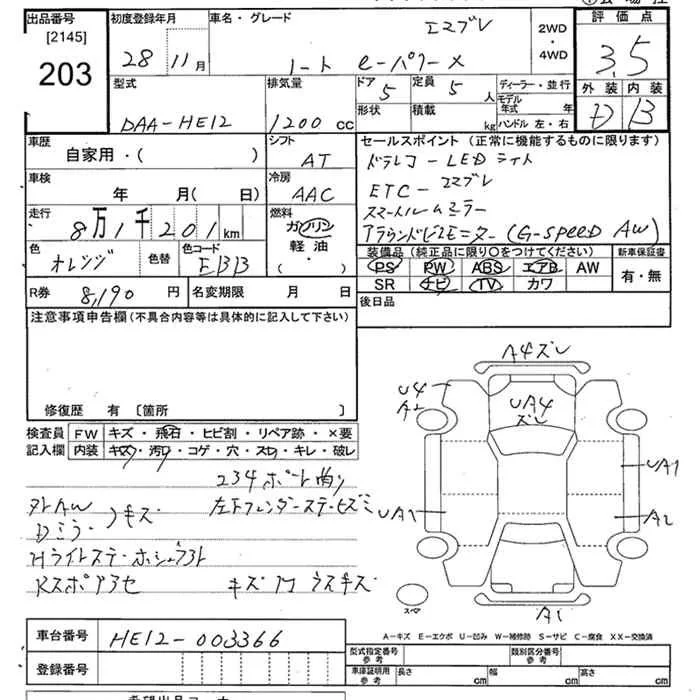 出品番号 初度登録年月 車名・グレード エマブレ 2WD・4WD 評価点
[2145]
203 28 11月 ノート e-パワーメ 3.5
型式 排気量 ドア 5 定員 5人 ディーラー・並行 外装 内装
DAA-HE12 1200 cc 形状 積載 kg モデル年式 年 ハンドル 左・右 D B
車歴 シフト セールスポイント (正常に機能するものに限ります)
自家用・( ) AT ドラレコ - LEDライト
車検 冷房 ETC - エマブレ
年 月( 日) AAC スマートルームミラー
走行 燃料 アラウンドビューモニター (G-SPEED AW)
8万1千201km ガソリン
軽油
・( )
色 色替 色コード 装備品 (純正品に限り○をつけてください) 新車保証書
オレンジ EBB PS PW ABS エアB AW 有・無
SR ナビ TV カワ
R券 8,190円 名変期限 月 日 後日品
注意事項申告欄 (不具合内容等は具体的に記入して下さい)
修復歴 有 [箇所 ]
検査員 FW キズ・飛石・ヒビ割・リペア跡・×要
記入欄 内装 キズ・汚レ・コゲ・穴・スレ・キレ・破レ
234 ポート曲り
外AW キズ
左下フェンダーステーヒズミ
Dミラー
HライトステーホシュウAト
キズ
A4ズレ
U4
A2
UA4
ズレ
UA1
UA1
A2
A1
スペア
A-キズ E-エクボ U-凹み W-補修跡 S-サビ C-腐食 XX-交換済
車台番号 HE12-003366
型式指定番号 参考 類別区分番号 参考
登録番号 車庫証明用 参考 長さ cm 幅 cm 高さ cm
希望出品コーナー